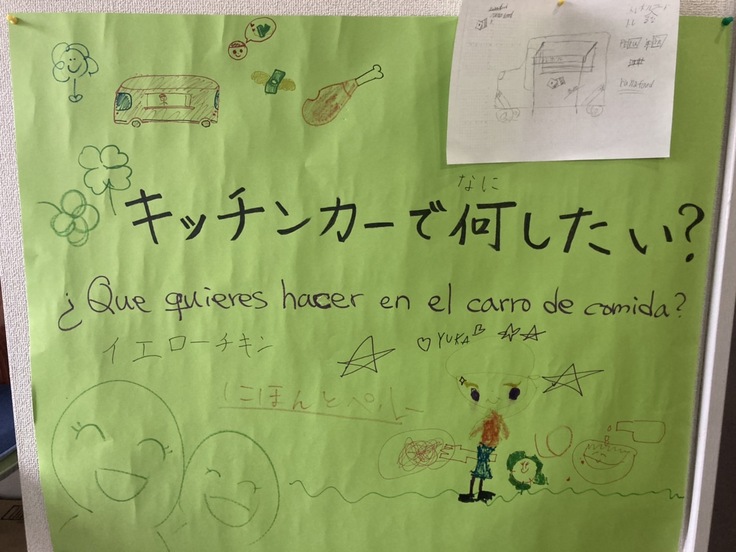 なに
キッチンカーで何したい?
¿Que quieres hacer en el carro de comida?
イエローチキン
YUKA
にほんとペルー